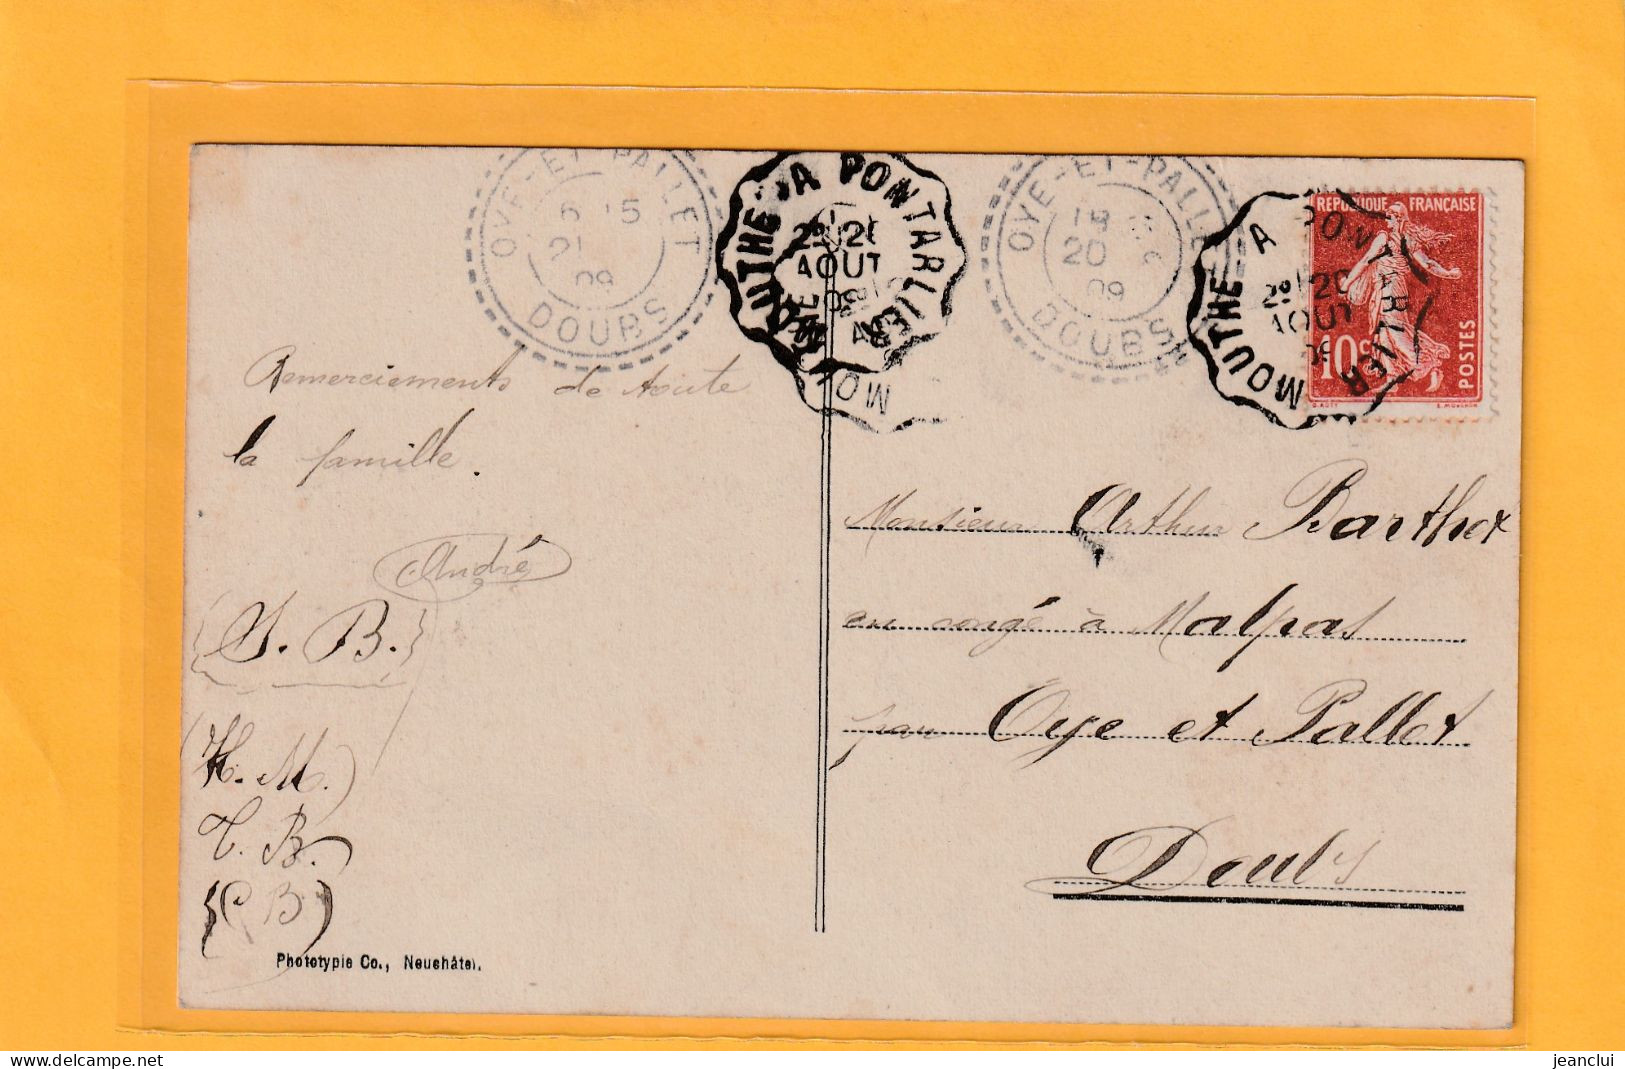 OYE-ET-PALLET
21
09
DOUBS
MOUTHE A PONTARLIER
2º 20
AOUT
OYE-ET-PALLET
18
20
09
DOUBS
MOUTHE A PONTARLIER
2º 20
AOUT
REPUBLIQUE FRANÇAISE
10c
POSTES
Remerciements de toute
la famille.
André
J. B.
H. M.
T. B.
C B
Monsieur Arthur Barthet
en congé à Malpas
par Oye et Pallet
Doubs
Phototypie Co., Neuchâtel.
jeanclui